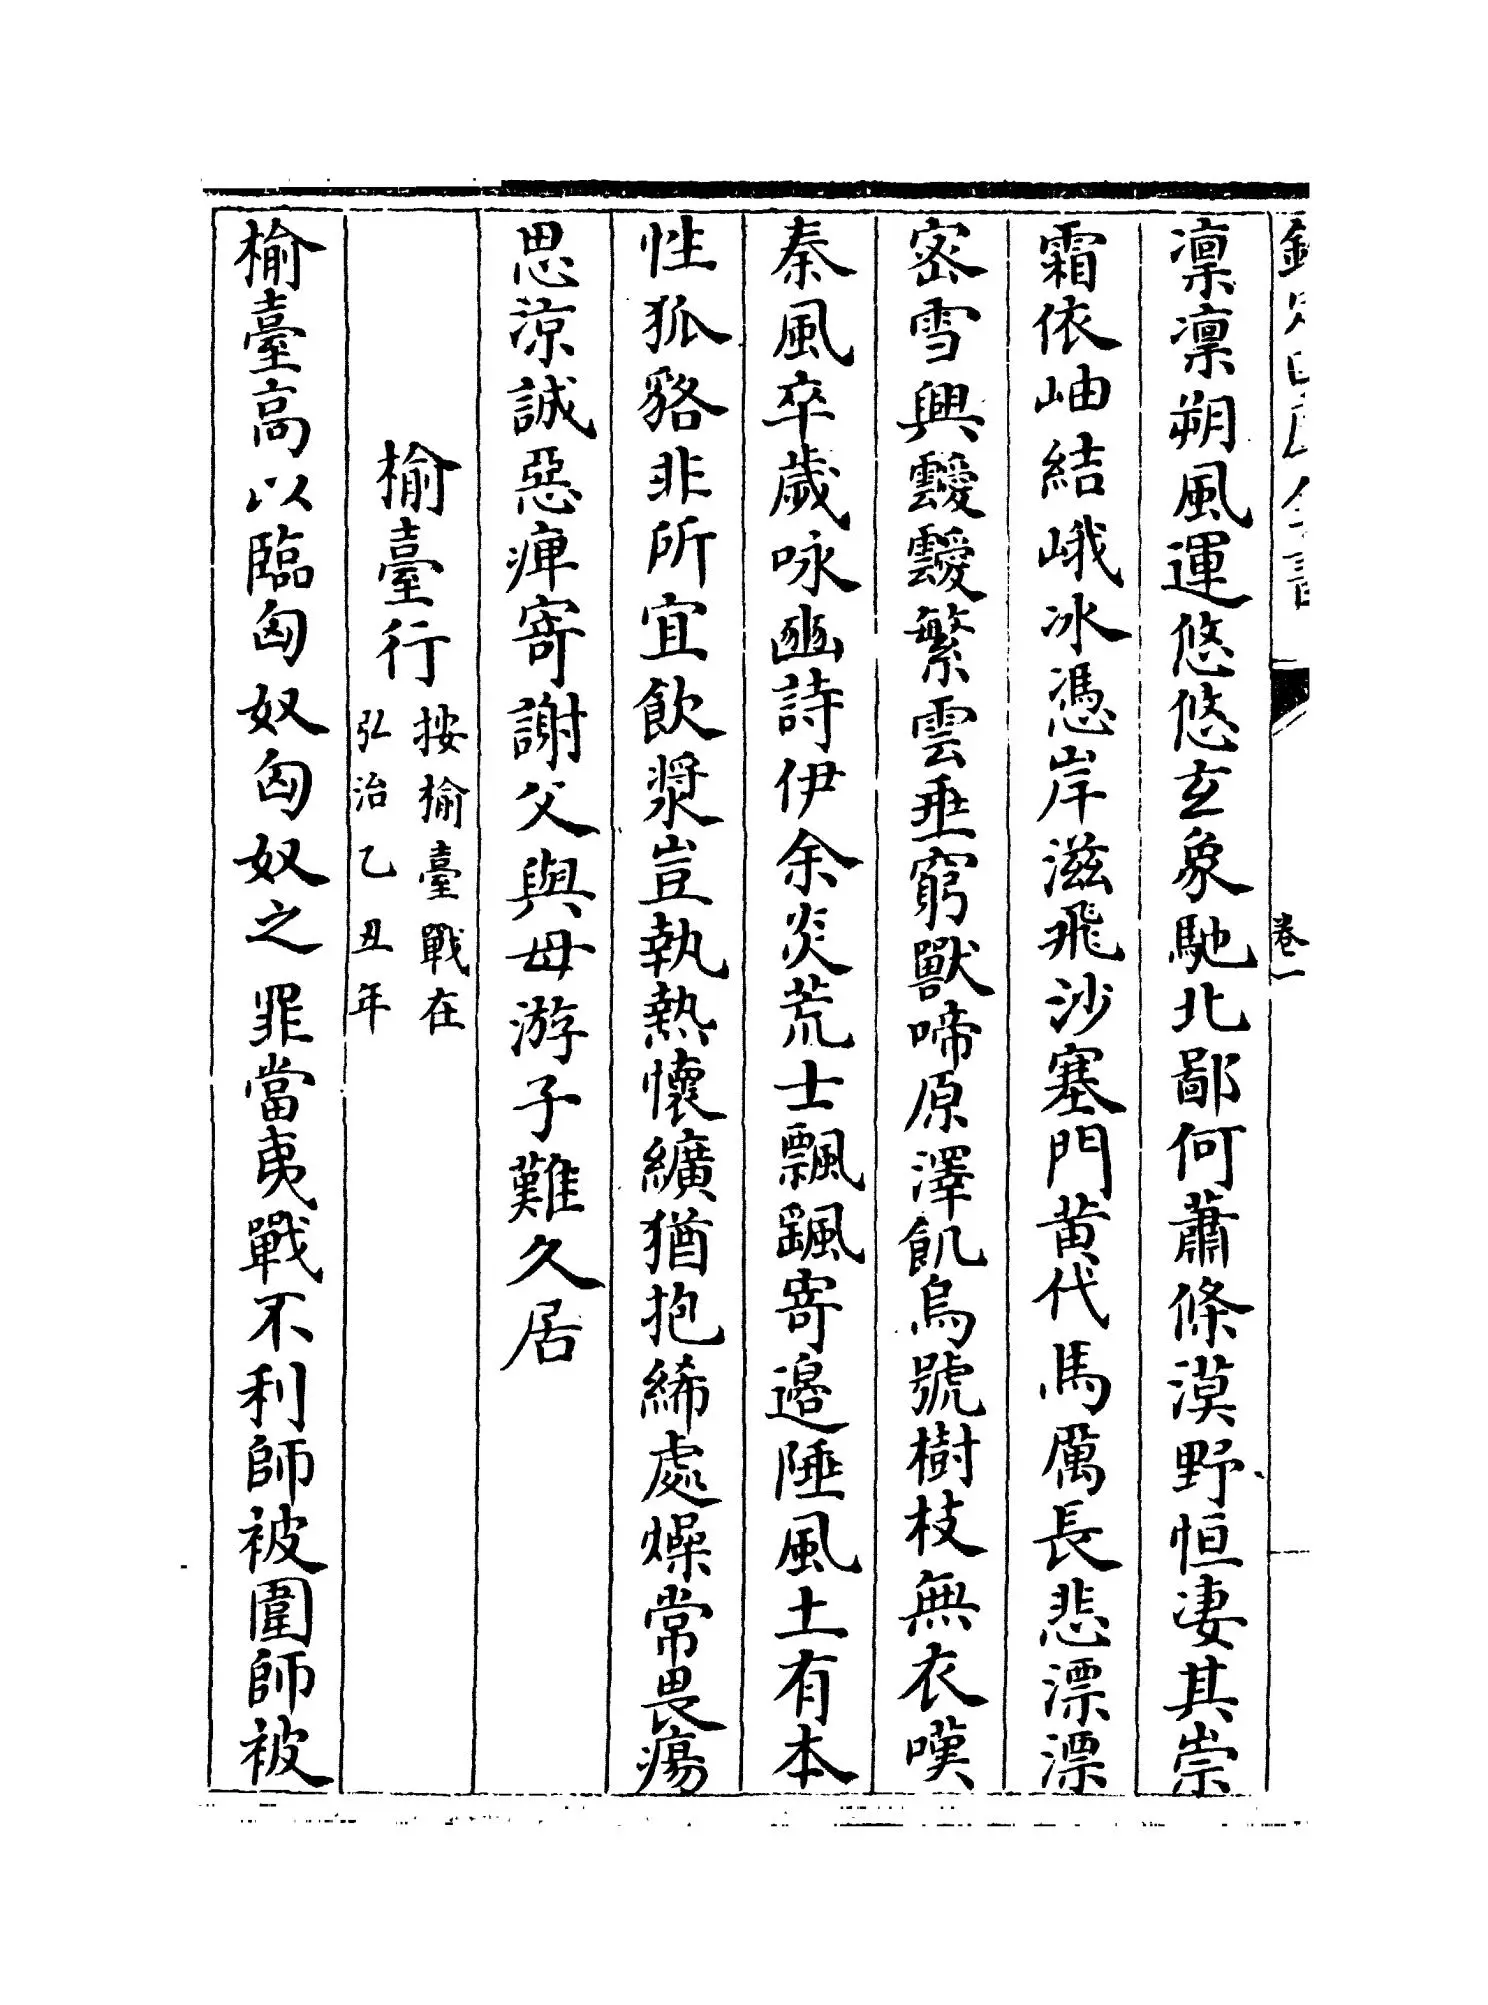 卷一
凛凛朔風運悠悠玄象馳北鄙何蕭條漠野恒凄其崇
霜依岫結峨冰憑岸滋飛沙塞門黄代馬厲長悲漂漂
宻雪興靉靉繁雲垂窮獸啼原澤飢烏號樹枝無衣嘆
秦風卒歲咏豳詩伊余炎荒士飄颻寄邉陲風土有本
性狐貉非所宜飲漿豈執熱懷纊猶抱絺處燥常畏瘍
思涼誠惡痺寄謝父與母游子難久居
榆臺行
按榆臺戰在
弘治乙丑年
榆臺髙以臨匈奴匈奴之罪當夷戰不利師被圍師被